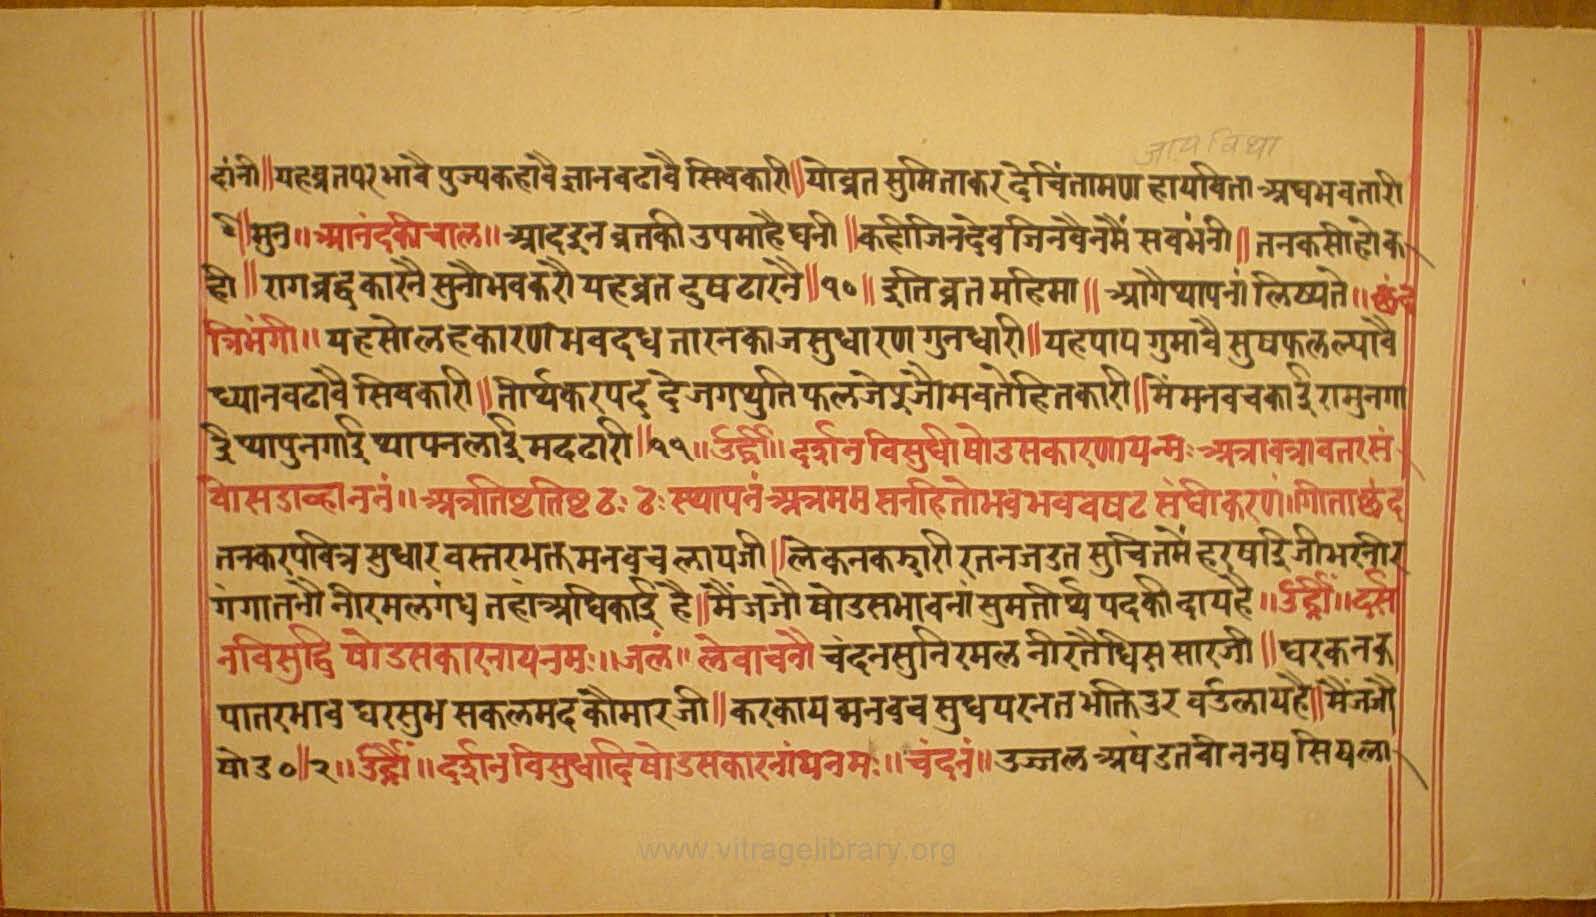 जाप विधा
दांनी॥यहव्रतपरभावै पुज्यकहावै ज्ञानवढावै सिवकारी॥योव्रत सुमिताकर देचिंतामण हायविता अघभवतारी
मुन॥आनंदकीचाल॥आदइन व्रतकी उपमाहै घनी॥कहीजिनदेव जिनवैनमैं सवभंनी॥तनकसीहोक
ही॥रागव्रद्वकारनै सुनौभवकरौ यहव्रत दुषटारनै॥१०॥इति व्रत महिमा॥आगैथापनां लिष्यते॥छंद
त्रिभंगी॥यहसोलहकारण भवदध तारनकाजसुधारण गुनधारी॥यहपाप गुमावै सुषफलल्यावै
ध्यानवढावै सिवकारी॥तीर्थकरपद दे जगथुति फलजेपुजौभवतेहितकारी॥मैंमनवचकाई रामुनगा
ई थापुनगाई थापनलाई मदटारी॥११॥उंह्रीं॥दर्शन विसुधी षोडसकारणायन्मः अत्रावत्रावतरसं
वोसडाव्हाननं॥अत्रतिष्टतिष्ट ठः ठः स्थापनं अत्रमम सनहितोभवभववषट संधीकरणं॥गीताछंद
तनकरपवित्र सुधार वस्तरभक्त मनवच लायजी॥लेकनकझारी रतनजडत सुचितमैं हरषाईजीभरनीर
गंगातनौ नीरमलगंध तहांअधिकाई है॥मैंजजौ षोडसभावनां सुमतीर्थ पदकी दायहै॥उंह्रीं॥दर्स
नविसुद्धि षोडसकारनायनमः॥जलं॥ल्वेवाचनौ चंदनसुनिरमल नीरतैघिस सारजी॥धरकनक
पातरभाव धरसुभ सकलमद कौमारजी॥करकाय मनवच सुधपरनत भक्तिउर वउलायहै॥मैंजजौ
षोड०॥२॥उंह्रीं॥दर्शन विसुधादिषोडसकारनांयनमः॥चंदनं॥उज्जल अषंडतवीननष सियला
www.vitragelibrary.org